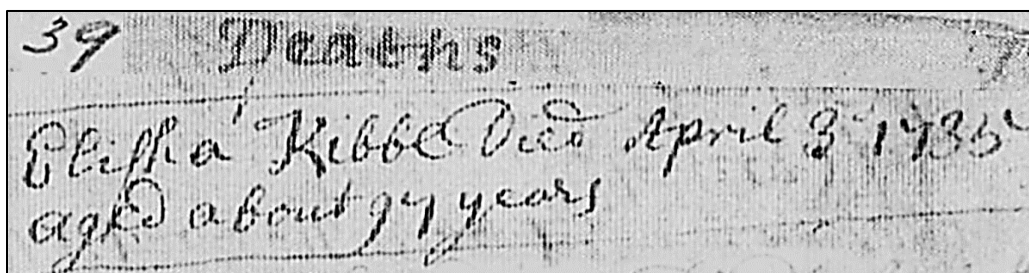 39 Deaths
Elisha Kibbe Died April 3 1735
aged about 97 years